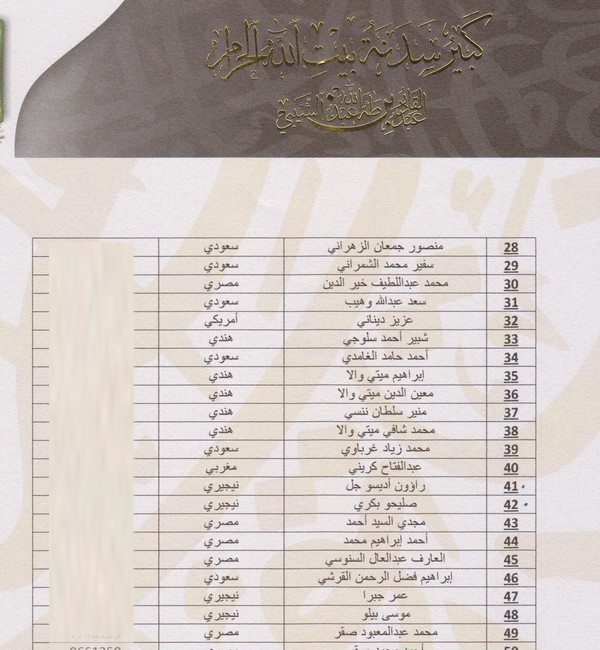 كبير سدنة بيت الله الحرام
عبدالقادر بن طه عبدالله الشيبي
28 منصور جمعان الزهراني سعودي
29 سفير محمد الشمراني سعودي
30 محمد عبداللطيف خير الدين مصري
31 سعد عبدالله وهيب سعودي
32 عزيز ديناني أمريكي
33 شبير أحمد سلوجي هندي
34 أحمد حامد الغامدي سعودي
35 إبراهيم ميتي والا هندي
36 معين الدين ميتي والا هندي
37 منير سلطان ننسي هندي
38 محمد شافي ميتي والا هندي
39 محمد زياد غرباوي سعودي
40 عبدالفتاح كريني مغربي
41 راؤون أديسو جل نيجيري
42 صليحو بكري نيجيري
43 مجدي السيد أحمد مصري
44 أحمد إبراهيم محمد مصري
45 العارف عبدالعال السنوسي مصري
46 إبراهيم فضل الرحمن القرشي سعودي
47 عمر جبرا نيجيري
48 موسى بيلو نيجيري
49 محمد عبدالمعبود صقر مصري
50